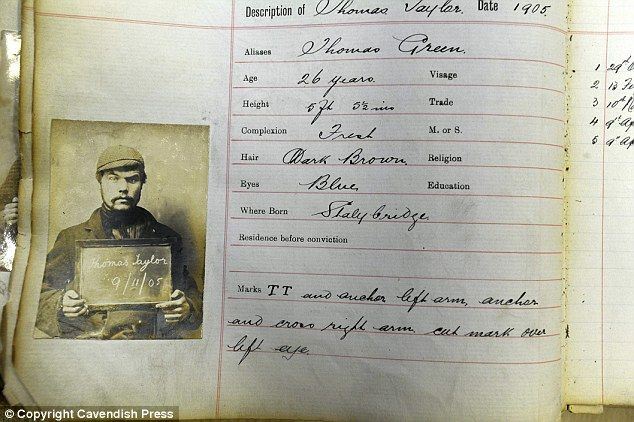 Description of Thomas Taylor. Date 1905.
Aliases Thomas Green.
Age 26 years. Visage
Height 5ft 5½ins Trade
Complexion Fresh M. or S.
Hair Dark Brown. Religion
Eyes Blue. Education
Where Born Stalybridge.
Residence before conviction
Marks TT and anchor left arm, anchor
and cross right arm, cut mark over
left eye.
Thomas Taylor
9/11/05
1
2
3
4
5
© Copyright Cavendish Press